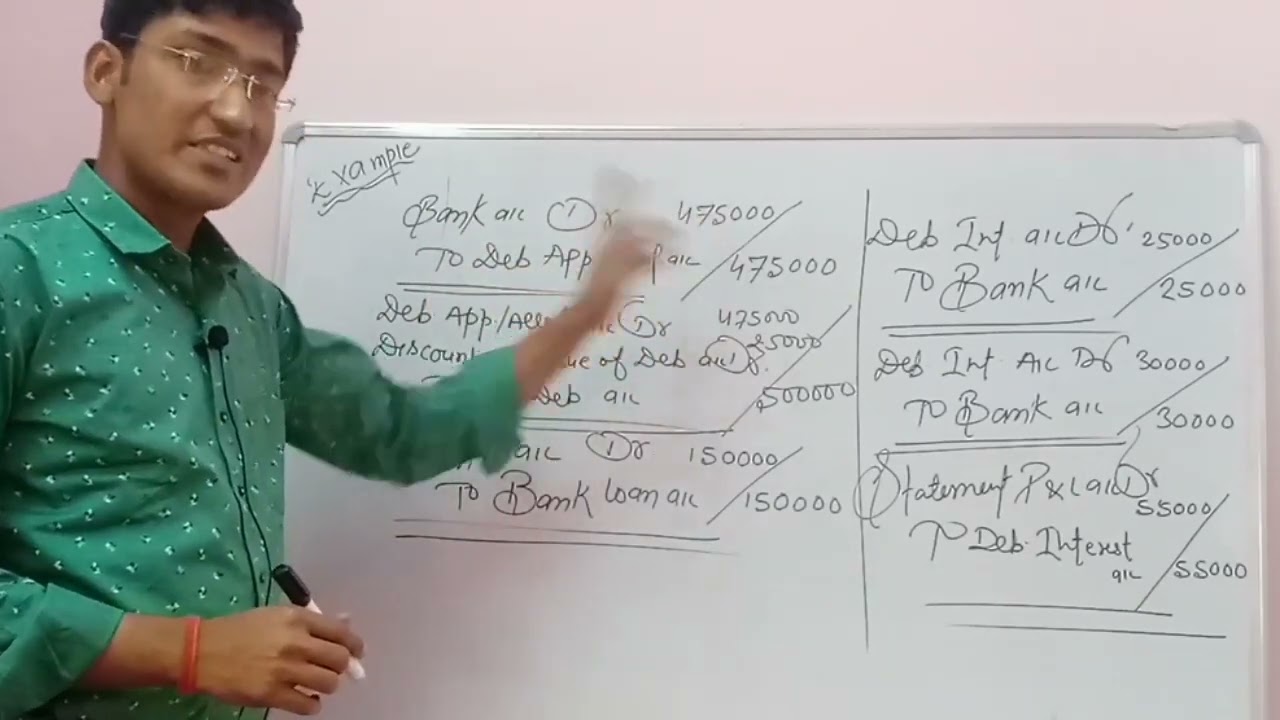 Example
Bank a/c Dr 475000
To Deb App a/c 475000
Deb. App./All Dr 475000
25000
Discount ue of Deb a/c Dr.
Deb a/c 500000
a/c Dr 150000
To Bank loan a/c 150000
Deb Int a/c Dr 25000
To Bank a/c 25000
Deb Int A/c Dr 30000
To Bank a/c 30000
Statement P & L a/c Dr
55000
To Deb. Interest
a/c 55000